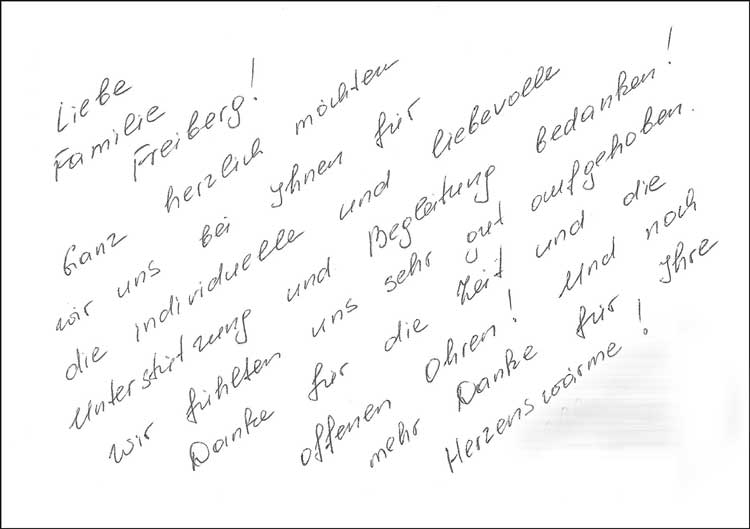 Liebe
Familie
Freiberg!
Ganz herzlich möchten
wir uns bei Ihnen für
die individuelle und liebevolle
Unterstützung und Begleitung bedanken!
Wir fühlten uns sehr gut aufgehoben.
Danke für die Zeit und die
offenen Ohren! Und noch
mehr Danke für Ihre
Herzenswärme!